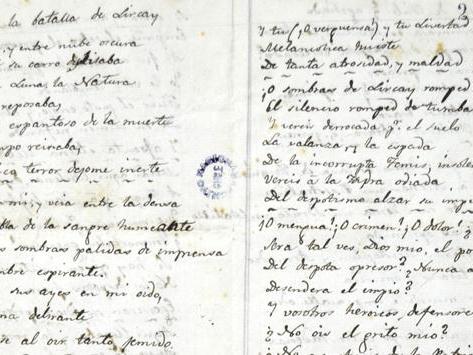 la batalla de Lircay
y entre nube oscura
su carro
Luna, la Natura
reposaba,
espantoso de la muerte
reinaba,
terror dejome inerte
mi, y veia entre la densa
de la sangre humeante
sombras palidas de imprensa
espirante.
sus ayes en mi oido,
delirante
al oir tanto jemido.
2
Y tu (¡O verguensa!) y tu Livertad
hiciste
De tanta atrosidad, y maldad
¡O sombras de Lircay romped
El silencio romped de tumba
Y vereis derrocada pr. el suelo
La valanza, y la espada
De la incorrupta Temis, insole
Vereis á la odiada
Del despotismo alzar su impe
¡O mengua! ¡O crimen! ¡O dolor! ¿
Sera tal ves, Dios mio, el po
Del despota opresor? ¿Nunca
Desendera el impio?
Y vosotros heroicos, defensore
¿No ois el grito mio?